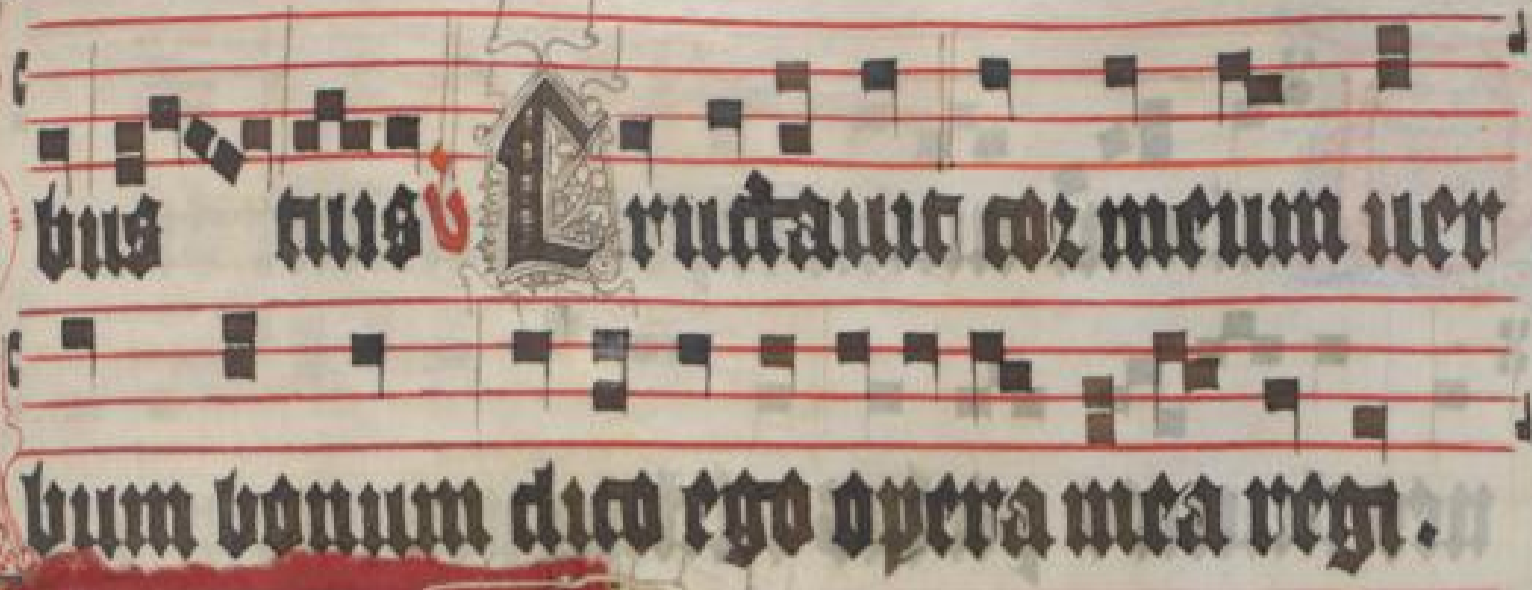 bus tuis ℣ Eructauit cor meum uer
bum bonum dico ego opera mea regi.